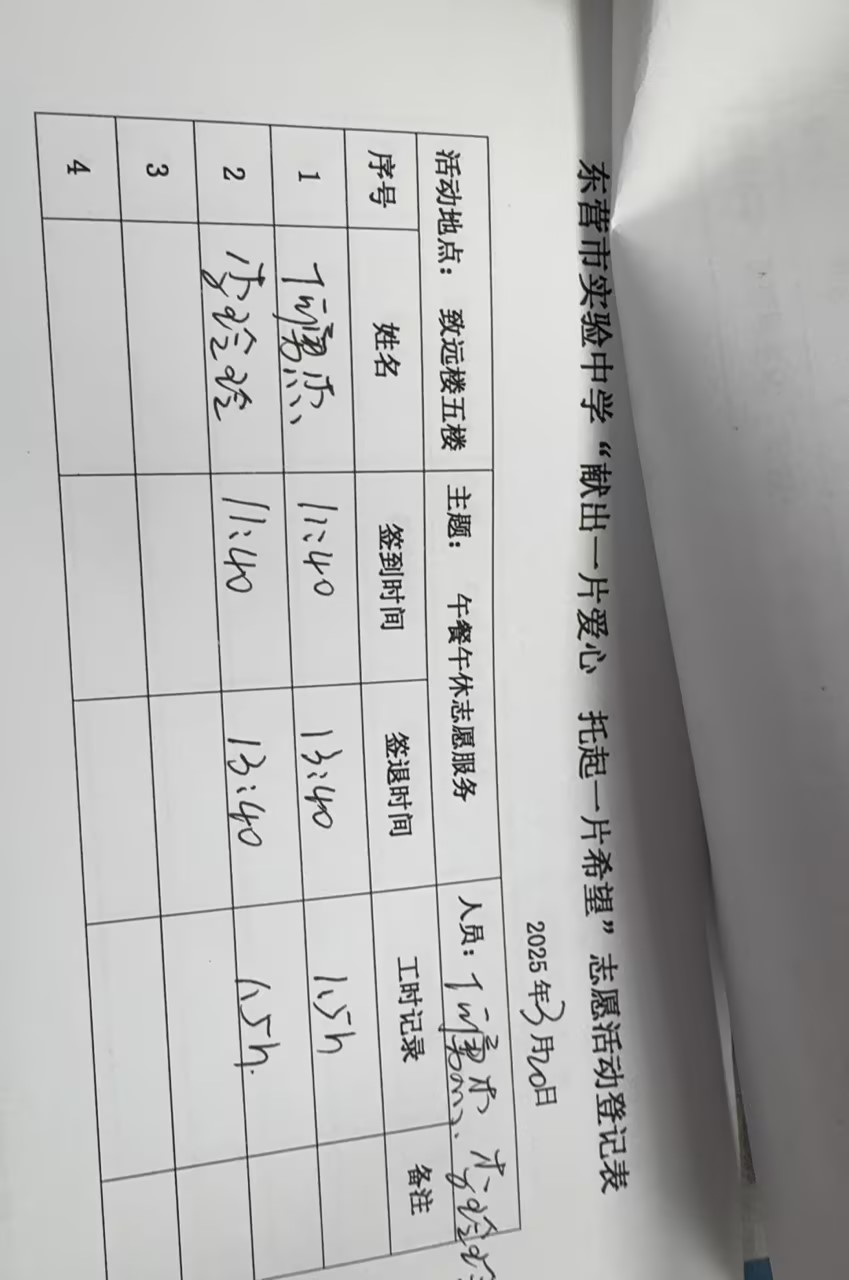 东营市实验中学“献出一片爱心 托起一片希望”志愿活动登记表
2025年3月20日
活动地点： 致远楼五楼 主题： 午餐午休志愿服务 人员：
序号 姓名 签到时间 签退时间 工时记录 备注
1 11:40 13:40 1.5h
2 李玲玲 11:40 13:40 1.5h.
3
4